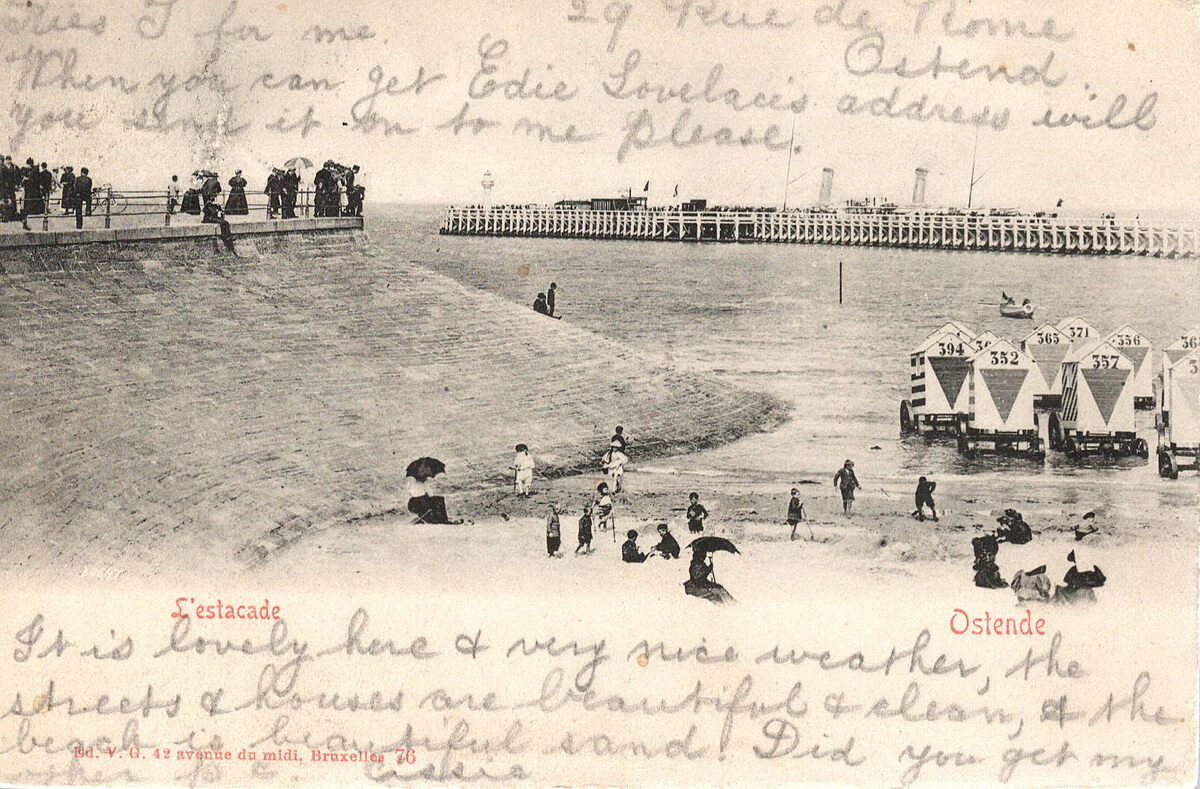 Kies I for me.
29 Rue de Rome
Ostend.
When you can get Edie Lovelace's address will
you send it on to me please.
394
352
365
371
357
356
36
L'estacade
Ostende
It is lovely here & very nice weather, the
streets & houses are beautiful & clean, & the
beach is beautiful sand. Did you get my
Ed. V. G. 42 avenue du midi, Bruxelles 76
other p.c. Cissie